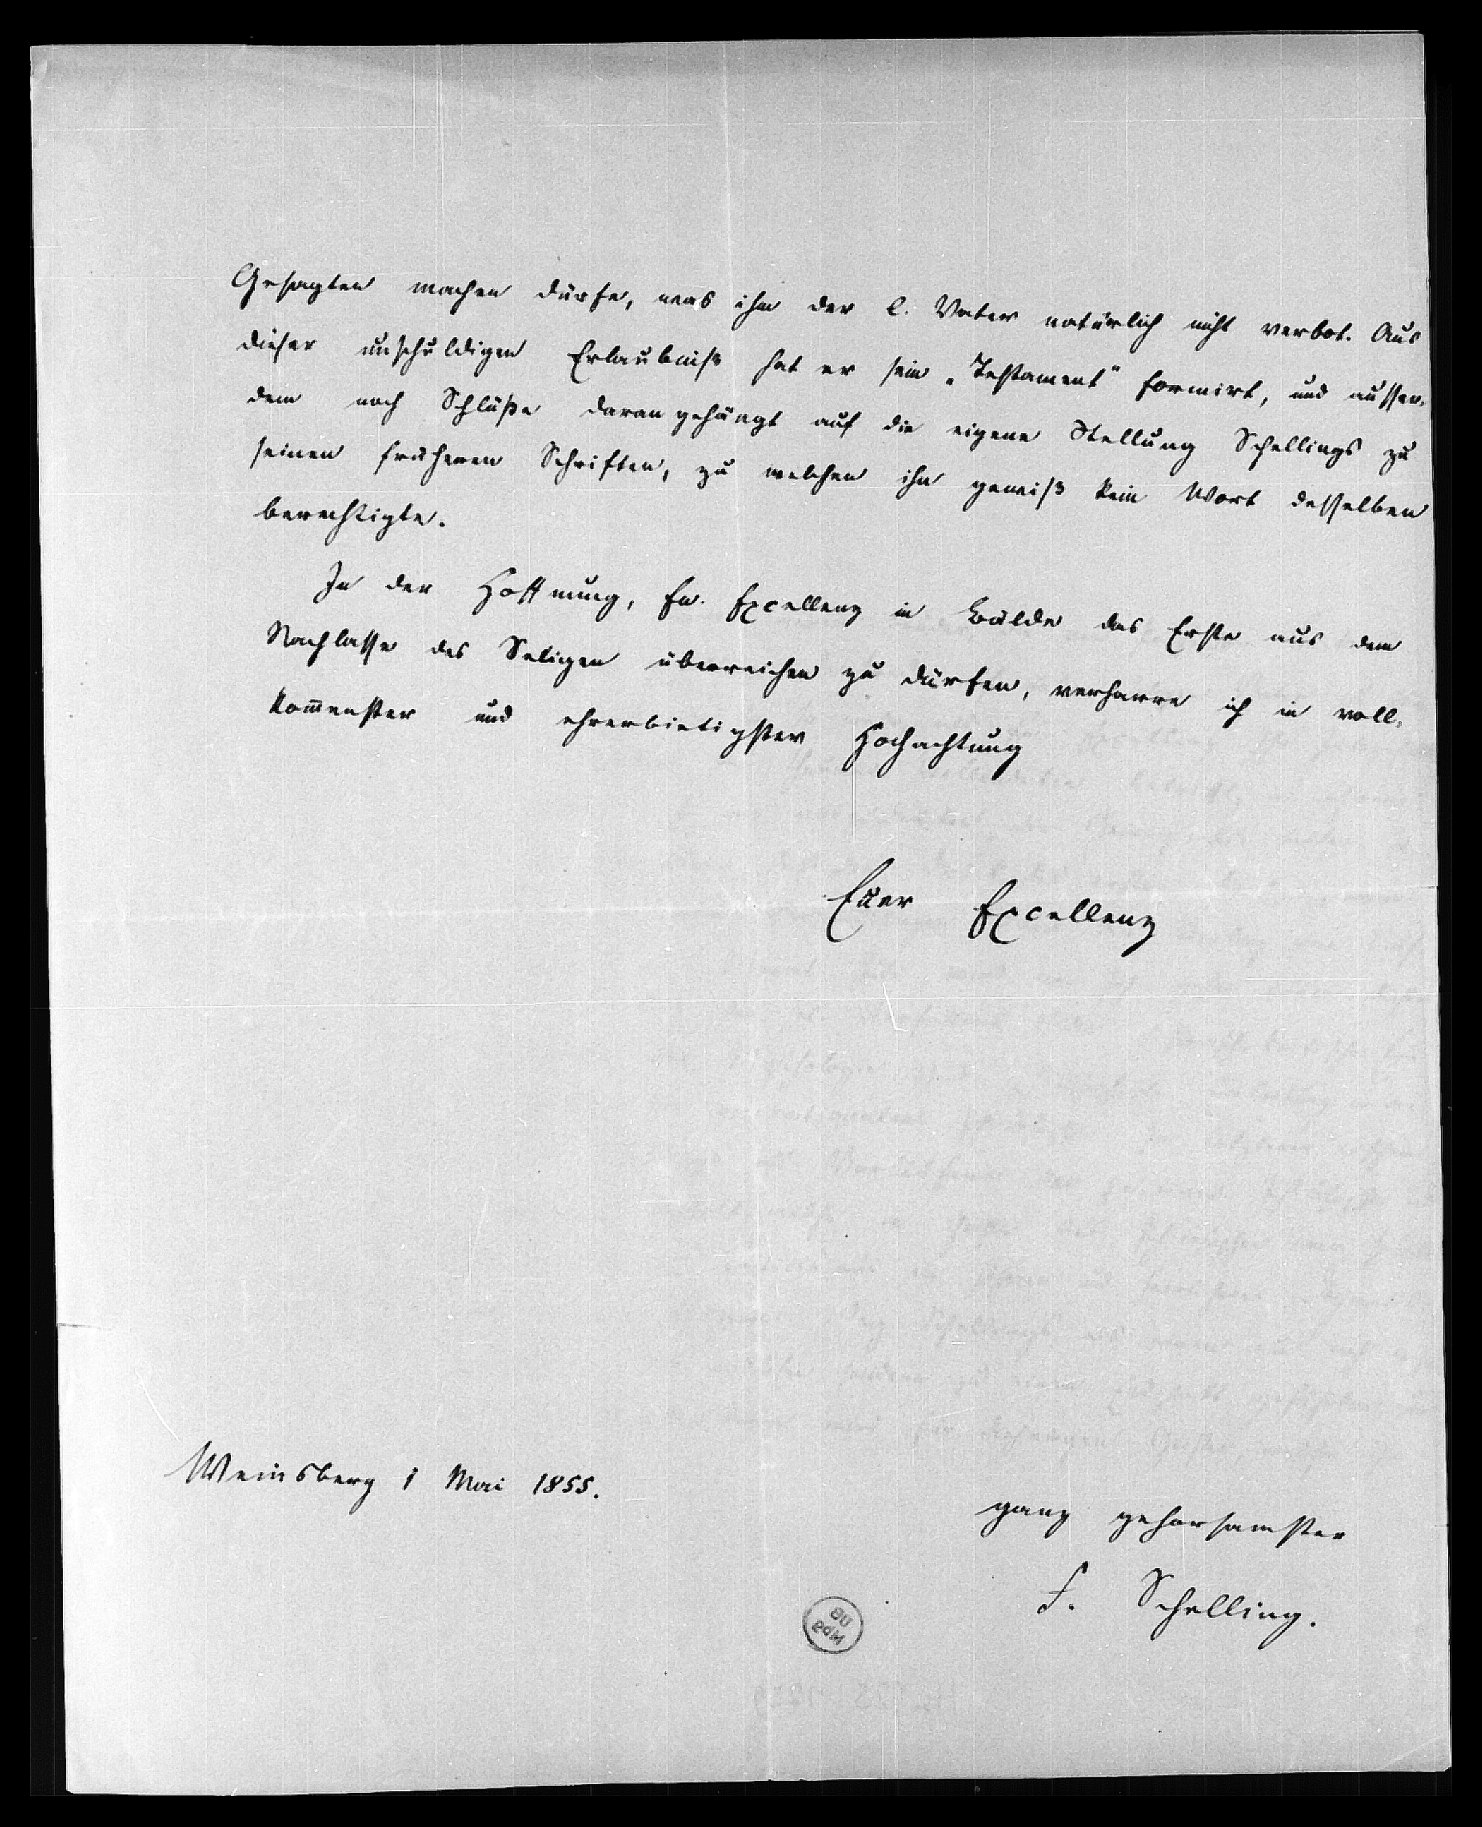 Gesagten machen dürfe, was ihm der l. Vater natürlich nicht verbot. Aus
dieser unschuldigen Erlaubniß hat er sein „Testament“ formirt, und ausser-
dem noch Schlüße daran gehängt auf die eigene Stellung Schellings zu
seinen früheren Schriften, zu welchen ihn gewiß kein Wort desselben
berechtigte.
In der Hoffnung, Ew. Excellenz in Bälde das Erste aus dem
Nachlasse des Seligen überreichen zu dürfen, verharre ich in voll-
kom̄enster und ehrerbietigster Hochachtung
Euer Excellenz
Weinsberg 1 Mai 1855.
ganz gehorsamster
F. Schelling.